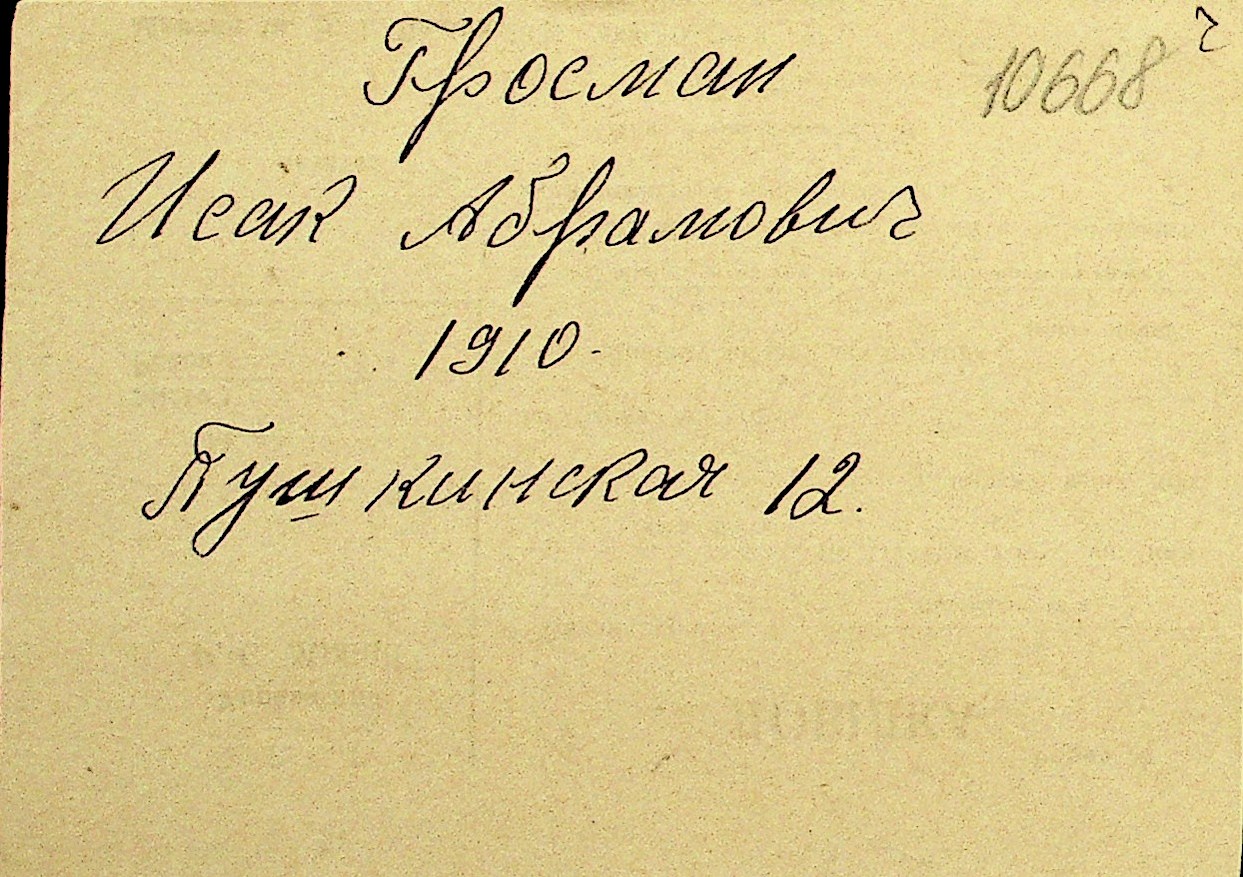 Гросман
10668
ч
Исак Абрамович
1910.
Пушкинская 12.